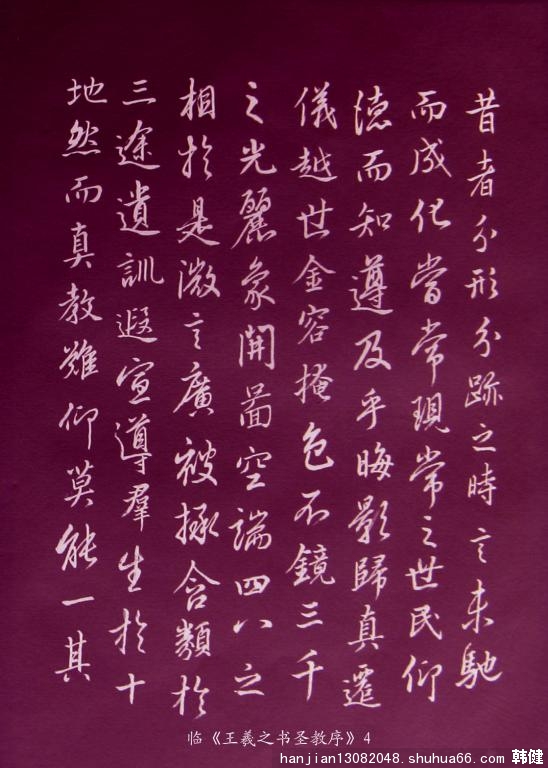 昔者分形分跡之時言未馳
而成化當常現常之世民仰
徳而知遵及乎晦影歸真遷
儀越世金容掩色不鏡三千
之光麗象開啚空端四八之
相於是微言廣被拯含類於
三途遺訓遐宣導羣生於十
地然而真教難仰莫能一其
临《王羲之书圣教序》4
hanjian13082048.shuhua66.com 韩健